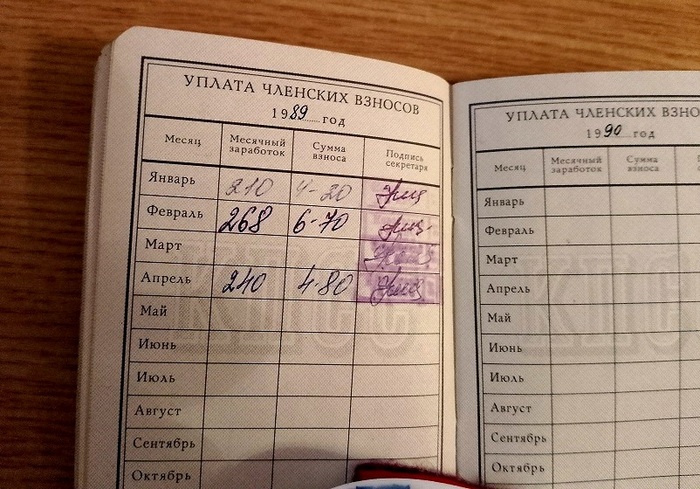 УПЛАТА ЧЛЕНСКИХ ВЗНОСОВ
1989 год
Месяц Месячный заработок Сумма взноса Подпись секретаря
Январь 210 4-20
Февраль 268 6-70
Март
Апрель 240 4-80
Май
Июнь
Июль
Август
Сентябрь
Октябрь
КПСС
УПЛАТА ЧЛЕНСКИХ ВЗНО
1990 год
Месяц Месячный заработок Сумма взноса
Январь
Февраль
Март
Апрель
Май
Июнь
Июль
Август
Сентябрь
Октябрь